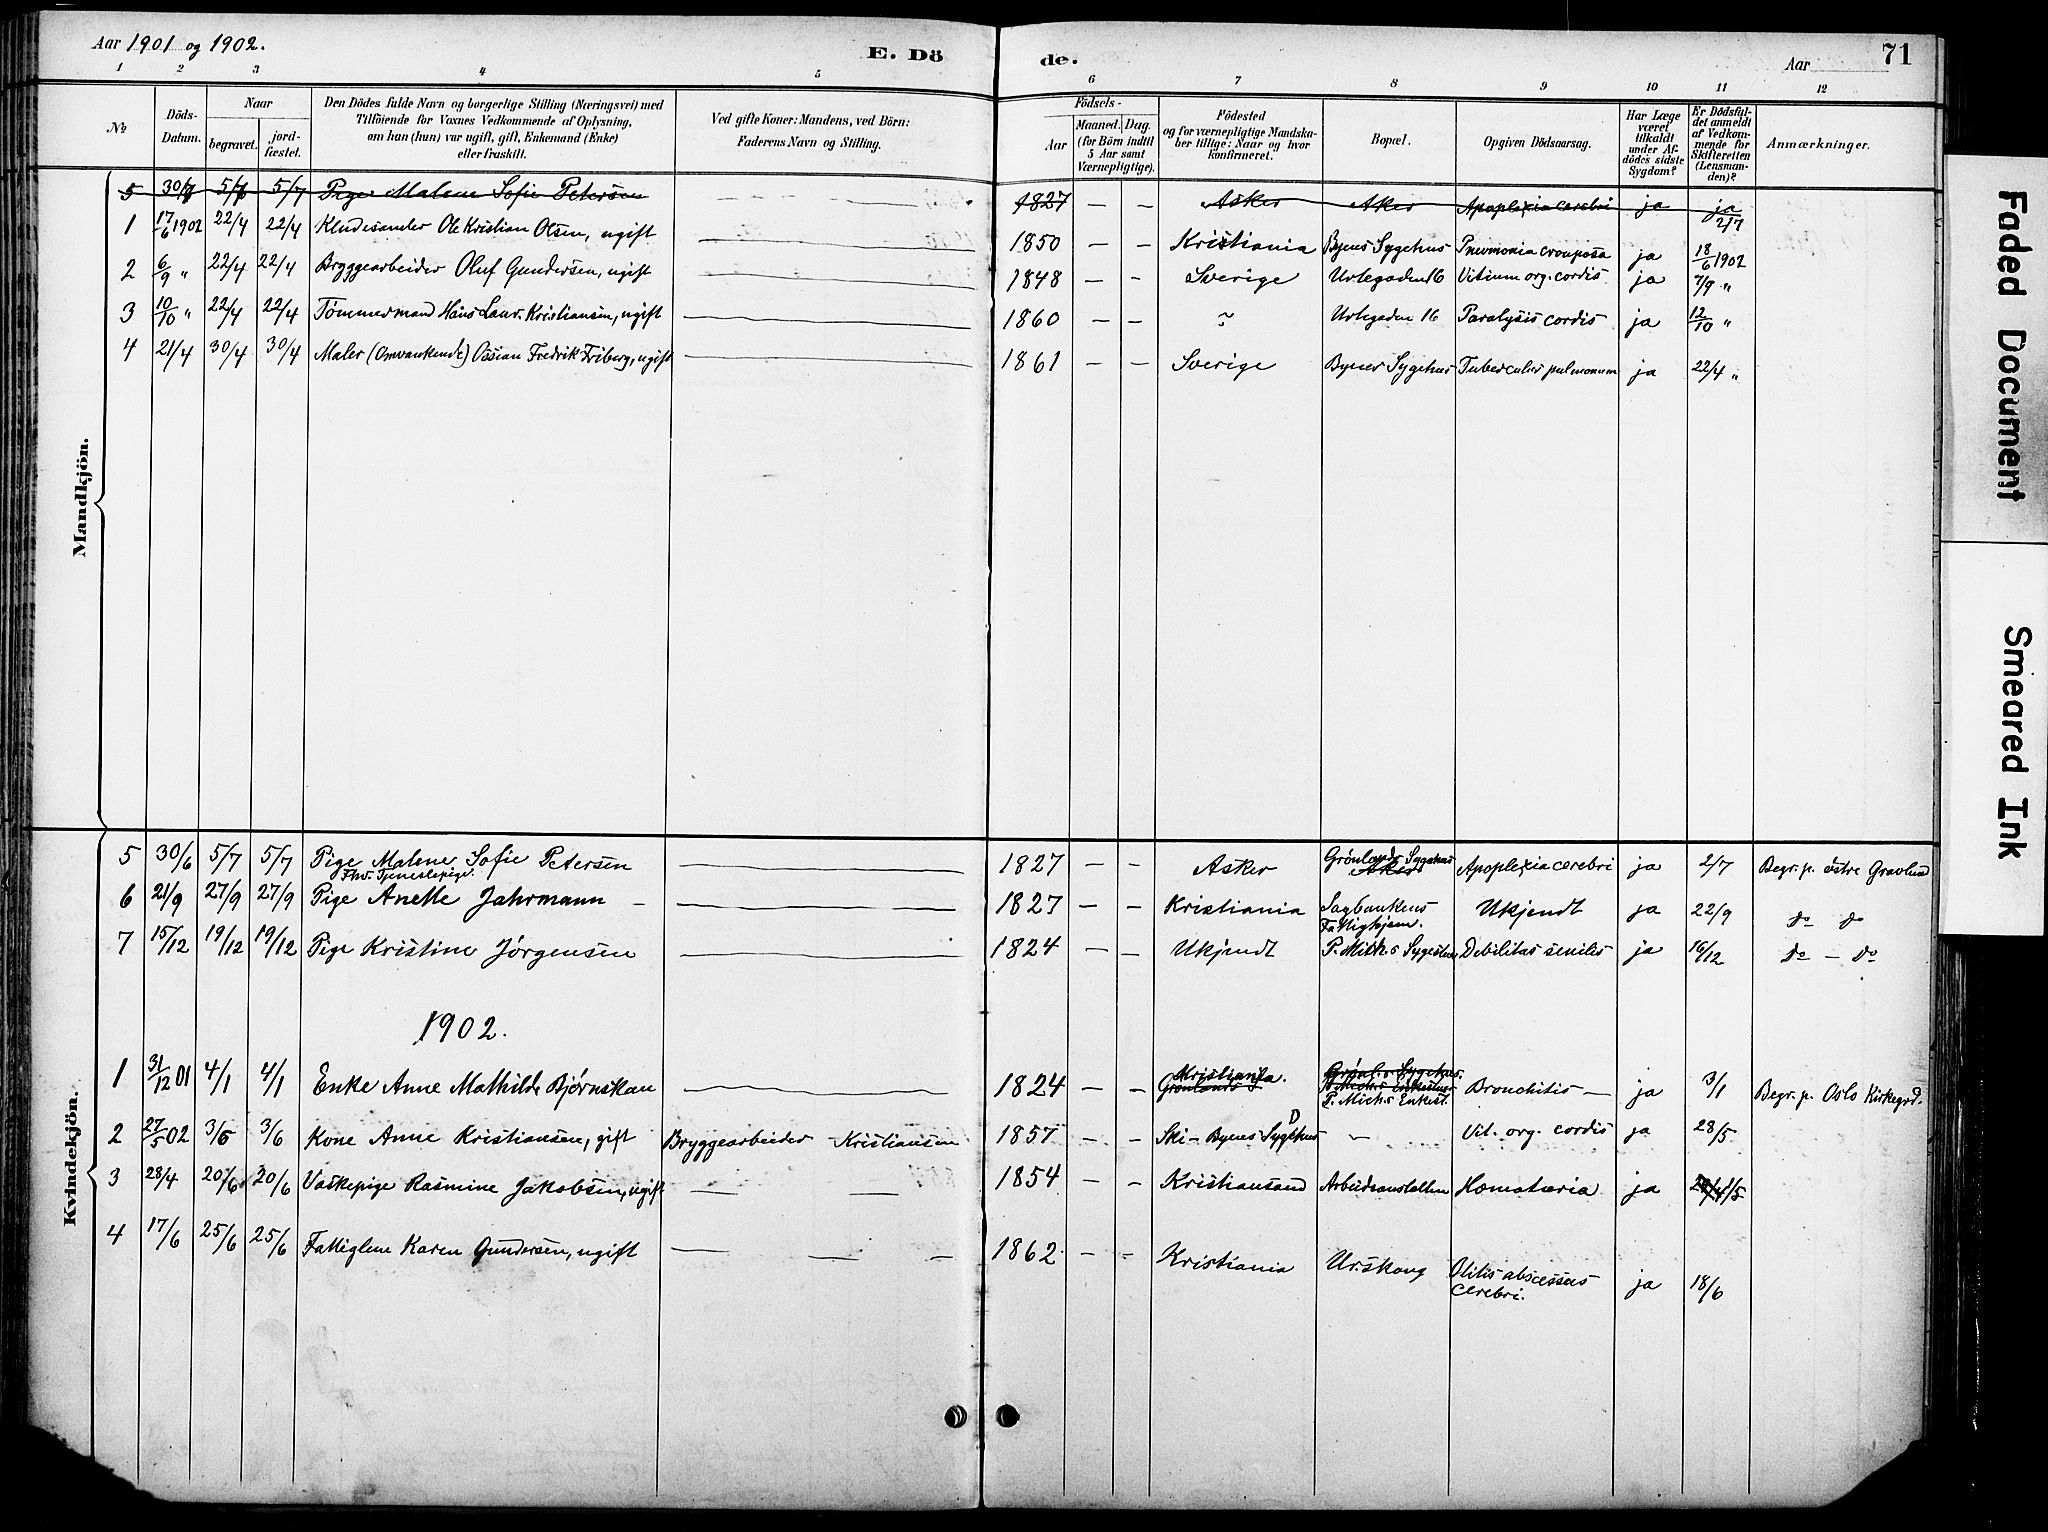 Aar 1901 og 1902. E. Dö de. Aar 71
1 2 3 4 5 6 7 8 9 10 11 12
№
Döds-Datum.
Naar
begravet. jordfæstet.
Den Dödes fulde Navn og borgerlige Stilling (Næringsvei) med
Tilföiende for Voxnes Vedkommende af Oplysning,
om han (hun) var ugift, gift, Enkemand (Enke)
eller fraskilt.
Ved gifte Koner: Mandens, ved Börn:
Faderens Navn og Stilling.
Födsels-
Aar
Maaned. Dag.
(for Börn indtil
5 Aar samt
Værnepligtige).
Födested
og for værnepligtige Mandska-
ber tillige: Naar og hvor
konfirmeret.
Bopæl.
Opgiven Dödsaarsag.
Har Læge
været
tilkaldt
under Af-
dödes sidste
Sygdom?
Er Dödsfal-
det anmeldt
af Vedkom-
mende for
Skifteretten
(Lensman-
den)?
Anmærkninger.
Mandkjön.
5 30/6 5/7 5/7 Pige Malene Sofie Petersen 1827 – – Asker Aker Apoplexia cerebri ja ja 2/7
1 17/6 1902 22/4 22/4 Kludesamler Ole Kristian Olsen, ugift 1850 – – Kristiania Byens Sygehus Pneumonia crouposa ja 18/6 1902
2 6/9 " 22/4 22/4 Bryggearbeider Oluf Gundersen, ugift 1848 – – Sverige Urtegaden 16 Vitium org. cordis ja 7/9 "
3 10/10 " 22/4 22/4 Tömmermand Hans Laur. Kristiansen, ugift 1860 – – ~ Urtegaden 16 Paralysis cordis ja 12/10 "
4 21/4 30/4 30/4 Maler (Omvankende) Ossian Fredrik Friberg, ugift 1861 – – Sverige Byens Sygehus Tuberculus pulmonum ja 22/4 "
Kvindekjön.
5 30/6 5/7 5/7 Pige Malene Sofie Petersen 1827 – – Asker Grönlands Sygehus Aker Apoplexia cerebri ja 2/7 Begr. p. østre Gravlund
Fhv. Tjenestepige
6 21/9 27/9 27/9 Pige Anette Jahrmann – 1827 – – Kristiania Sagbankens Fattighjem. Ukjendt ja 22/9 do do
7 15/12 19/12 19/12 Pige Kristine Jørgensen 1824 – – Ukjendt P. Mich.s Sygestue Debilitas senilis ja 16/12 do – do
1902.
1 31/12 01 4/1 4/1 Enke Anne Mathilde Bjørnskau 1824 – – Kristiania. Grönlands S Grönl.s Sygehus. P. Mich.s Enkest. Bronchitis – ja 3/1 Begr. p. Oslo Kirkegrd.
2 27/5 02 3/6 3/6 Kone Anne Kristiansen, gift Bryggearbeider – Kristiansen 1857 – – Ski – Byens Sygehus D – Vit. org. cordis ja 28/5
3 28/4 20/6 20/6 Vaskepige Rasmine Jakobsen, ugift 1854 – – Kristiansand Arbeidsanstalten Hæmaturia ja 1/5
4 17/6 25/6 25/6 Fattiglem Karen Gundersen, ugift 1862 – – Kristiania Urskoug Otitis abscessus cerebri. ja 18/6
Faded Document
Smeared Ink